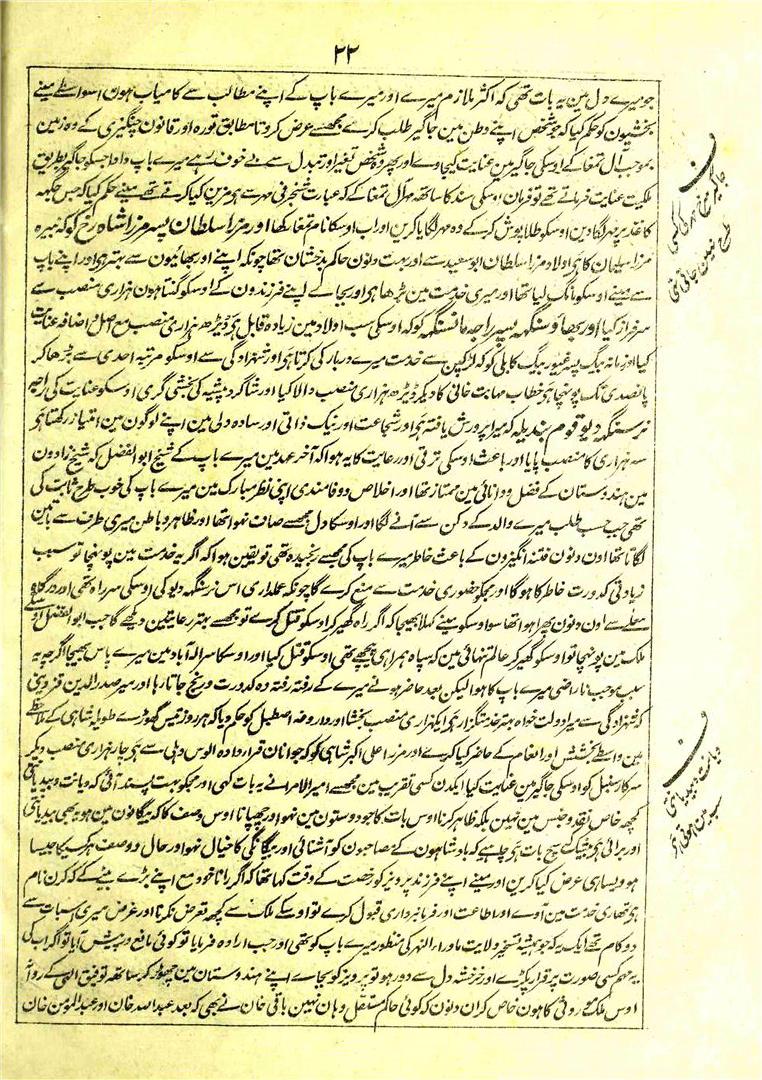 ۲۲
جو میرے دل مین یہ بات تھی کہ اکثر ملازم میرے اور میرے باپ کے اپنے مطالب سے کامیاب ہون اسواسطے مینے
بخشیون کو حکم کیا کہ جو شخص اپنے وطن مین جاگیر طلب کرے مجھسے عرض کرو تا مطابق تورہ اور قانون چنگیزی کے وہ زمین
بموجب آل تمغا کے اوسکی جاگیر مین عنایت کیجاوے اور پھر وہ شخص تغیر اور تبدل سے بے خوف رہے میرے باپ دادا جسکو جاگیر بطریق
ملکیت عنایت فرماتے تھے تو فرمان اوسکی سند کا ساتھ مہر آل تمغا کے کہ عبارت شنجرفی مہر سے ہو مزین کیا کرتے تھے مینے حکم کیا کہ جس جگہہ
کاغذ پر مہر لگا دین اوسکو طلا پوش کر کے وہ مہر لگایا کرین اور اب اوسکا نام تمغا رکھا اور مرزا سلطان پسر مرزا شاہ رخ کو کہ نبیرہ
مرزا سلیمان کا ہی اولاد مرزا سلطان ابو سعید سے اور بہت دنون حاکم بدخشان تھا چونکہ اپنے اور بھائیون سے بہتر ہی اور اپنے باپ
سے مینے اوسکو مانگ لیا تھا اور میری خدمت مین بڑھا ہی اور بجاے اپنے فرزندون کے اوسکو گنتا ہون ہزاری منصب سے
سرفراز کیا اور بھاؤ سنگہہ پسر راجہ مانسنگہہ کو کہ اوسکی سب اولاد مین زیادہ قابل ہی ڈیڑھ ہزاری منصب مع اصل و اضافہ عنایت
کیا اور زمانہ بیگ پسر غیور بیگ کابلی کو کہ لڑکپن سے خدمت میرے دربار کی کرتا ہی اور شہزادگی سے اوسکو مرتبہ احدی سے بڑھا کر
پانصدی تک پونہچایا ہی خطاب مہابت خانی کا دیکر ڈیڑھ ہزاری منصب والا کیا اور شاگرد پیشہ کی بخشی گری اوسکو عنایت کی راجہ
نرسنگہہ دیو قوم بندیلہ کہ میرا پرورش یافتہ ہی اور شجاعت اور نیک ذاتی اور سادہ دلی مین اپنے لوگون مین امتیاز رکھتا ہی
سہ ہزاری کا منصب پایا اور باعث اوسکی ترقی اور رعایت کا یہ ہوا کہ آخر عہد مین میرے باپ کے شیخ ابو الفضل کہ شیخ زادون
مین ہندوستان کے فضل و دانائی مین ممتاز تھا اور اخلاص و وفامندی اپنی نظر مبارک مین میرے باپ کی خوب طرح ثابت کی
تھی جب حسب طلب میرے والد کے دکن سے آنے لگا اور اوسکا دل مجھسے صاف نہوا تھا اور ظاہر و باطن میری طرف سے باتین
لگاتا تھا اون دنون فتنہ انگیزون کے باعث خاطر میرے باپ کی مجھسے رنجیدہ تھی تو یقین ہوا کہ اگر یہ خدمت مین پونہچا تو سبب
زیادتی کدورت خاطر کا ہوگا اور مجکو حضوری خدمت سے منع کرے گا چونکہ عملداری اس نرسنگہہ دیو کی اوسکی سر راہ تھی اور درگاہ
سے اون دنون پھرا ہوا تھا سو اوسکو مینے کہلا بھیجا کہ اگر راہ گھیر کر اوسکو قتل کرے تو مجھسے بہتر رعایتین دیکھے گا جب ابو الفضل اوسکے
ملک مین پونہچا تو اوسکو گھیر کر عالم تنہائی مین کہ سپاہ ہمراہی پیچھے تھی اوسکو قتل کیا اور اوسکا سر الہ آباد مین میرے پاس بھیجا اگرچہ یہ
سبب موجب ناراضی میرے باپ کا ہوا لیکن بعد حاضر ہونے میرے کے رفتہ رفتہ وہ کدورت و رنج جاتا رہا اور میر صدر الدین قزوینی
کہ شہزادگی سے میرا دولت خواہ بہتر خدمتگزار ہی ایکہزاری منصب بخشا اور داروغہ اصطبل کو حکم دیا کہ ہر روز تیس گھوڑے طویلہ شاہی کے ملاحظہ
مین واسطے بخشش اور انعام کے حاضر کیا کرے اور مرزا علی اکبر شاہی کو کہ جوانان قرار دادہ الوس دہلی سے ہی چار ہزاری منصب دیکر
سرکار سنبل کو اوسکی جاگیر مین عنایت کیا ایکدن کسی تقریب مین مجھسے امیر الامرا نے یہ بات کہی اور مجکو بہت پسند آئی کہ دیانت و بیدیانتی
کچھہ خاص نقد و جنس مین نہین بلکہ ظاہر کرنا اوس بات کا جو دوستون مین نہو اور چھپانا اوس وصف کا کہ بیگانون مین ہو یہ بھی بیدیانتی
اور برائی ہی بیشک سچ بات ہی چاہیے کہ بادشاہون کے مصاحبون کو آشنائی اور بیگانگی کا خیال نہو اور حال و وصف ہر کسی کا جیسا
ہو ویسا ہی عرض کیا کرین اور مینے اپنے فرزند پرویز کو رخصت کے وقت کہا تھا کہ اگر رانا خود مع اپنے بڑے بیٹے کے کہ کرن نام
ہی تمھاری خدمت مین آوے اور اطاعت اور فرمانبرداری قبول کرے تو اوسکے ملک سے کچھ تعرض نکرنا اور غرض میری اسبات سے
دو کام تھے ایک یہ کہ جو ہمیشہ تسخیر ولایت ماوراء النہر کی منظور میرے باپ کو تھی اور جب ارادہ فرمایا تو کوئی مانع در پیش آیا تو اگر اب کی
یہ مہم کسی صورت پر قرار پکڑے اور خرخشہ دل سے دور ہو تو پرویز کو بجاے اپنے ہندوستان مین چھوڑ کر ساتھہ توفیق الہی کے روانہ
اوس ملک موروثی کا ہون خاص کر ان دنون کہ کوئی حاکم مستقل وہان نہین باقی خان نے بھی کہ بعد عبد اللہ خان اور عبد المومن خان